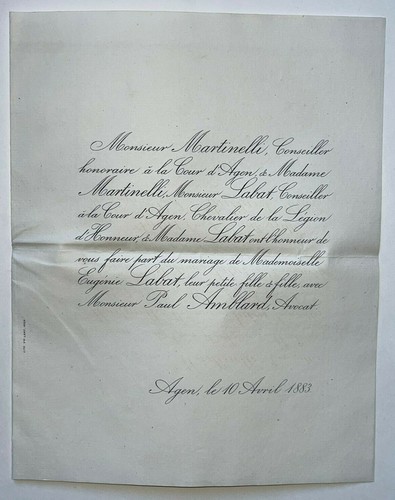 Monsieur Martinelli, Conseiller
honoraire à la Cour d'Agen, & Madame
Martinelli, Monsieur Labat, Conseiller
à la Cour d'Agen, Chevalier de la Légion
d'Honneur, & Madame Labat ont l'honneur de
vous faire part du mariage de Mademoiselle
Eugénie Labat, leur petite fille & fille, avec
Monsieur Paul Amblard, Avocat.
Agen, le 10 Avril 1883.